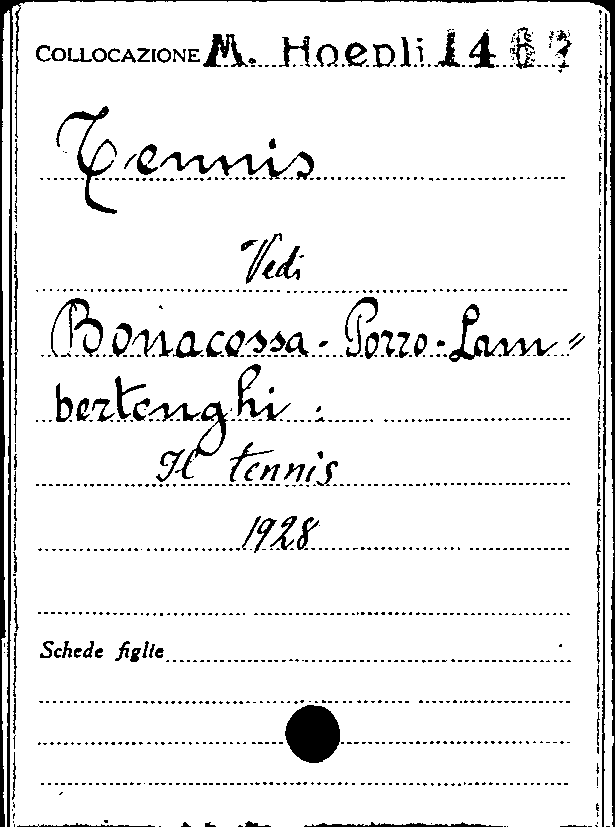 COLLOCAZIONE M. Hoepli 146
Tennis
Vedi
Bonacossa - Porro - Lam=
bertenghi :
Il tennis
1928
Schede figlie